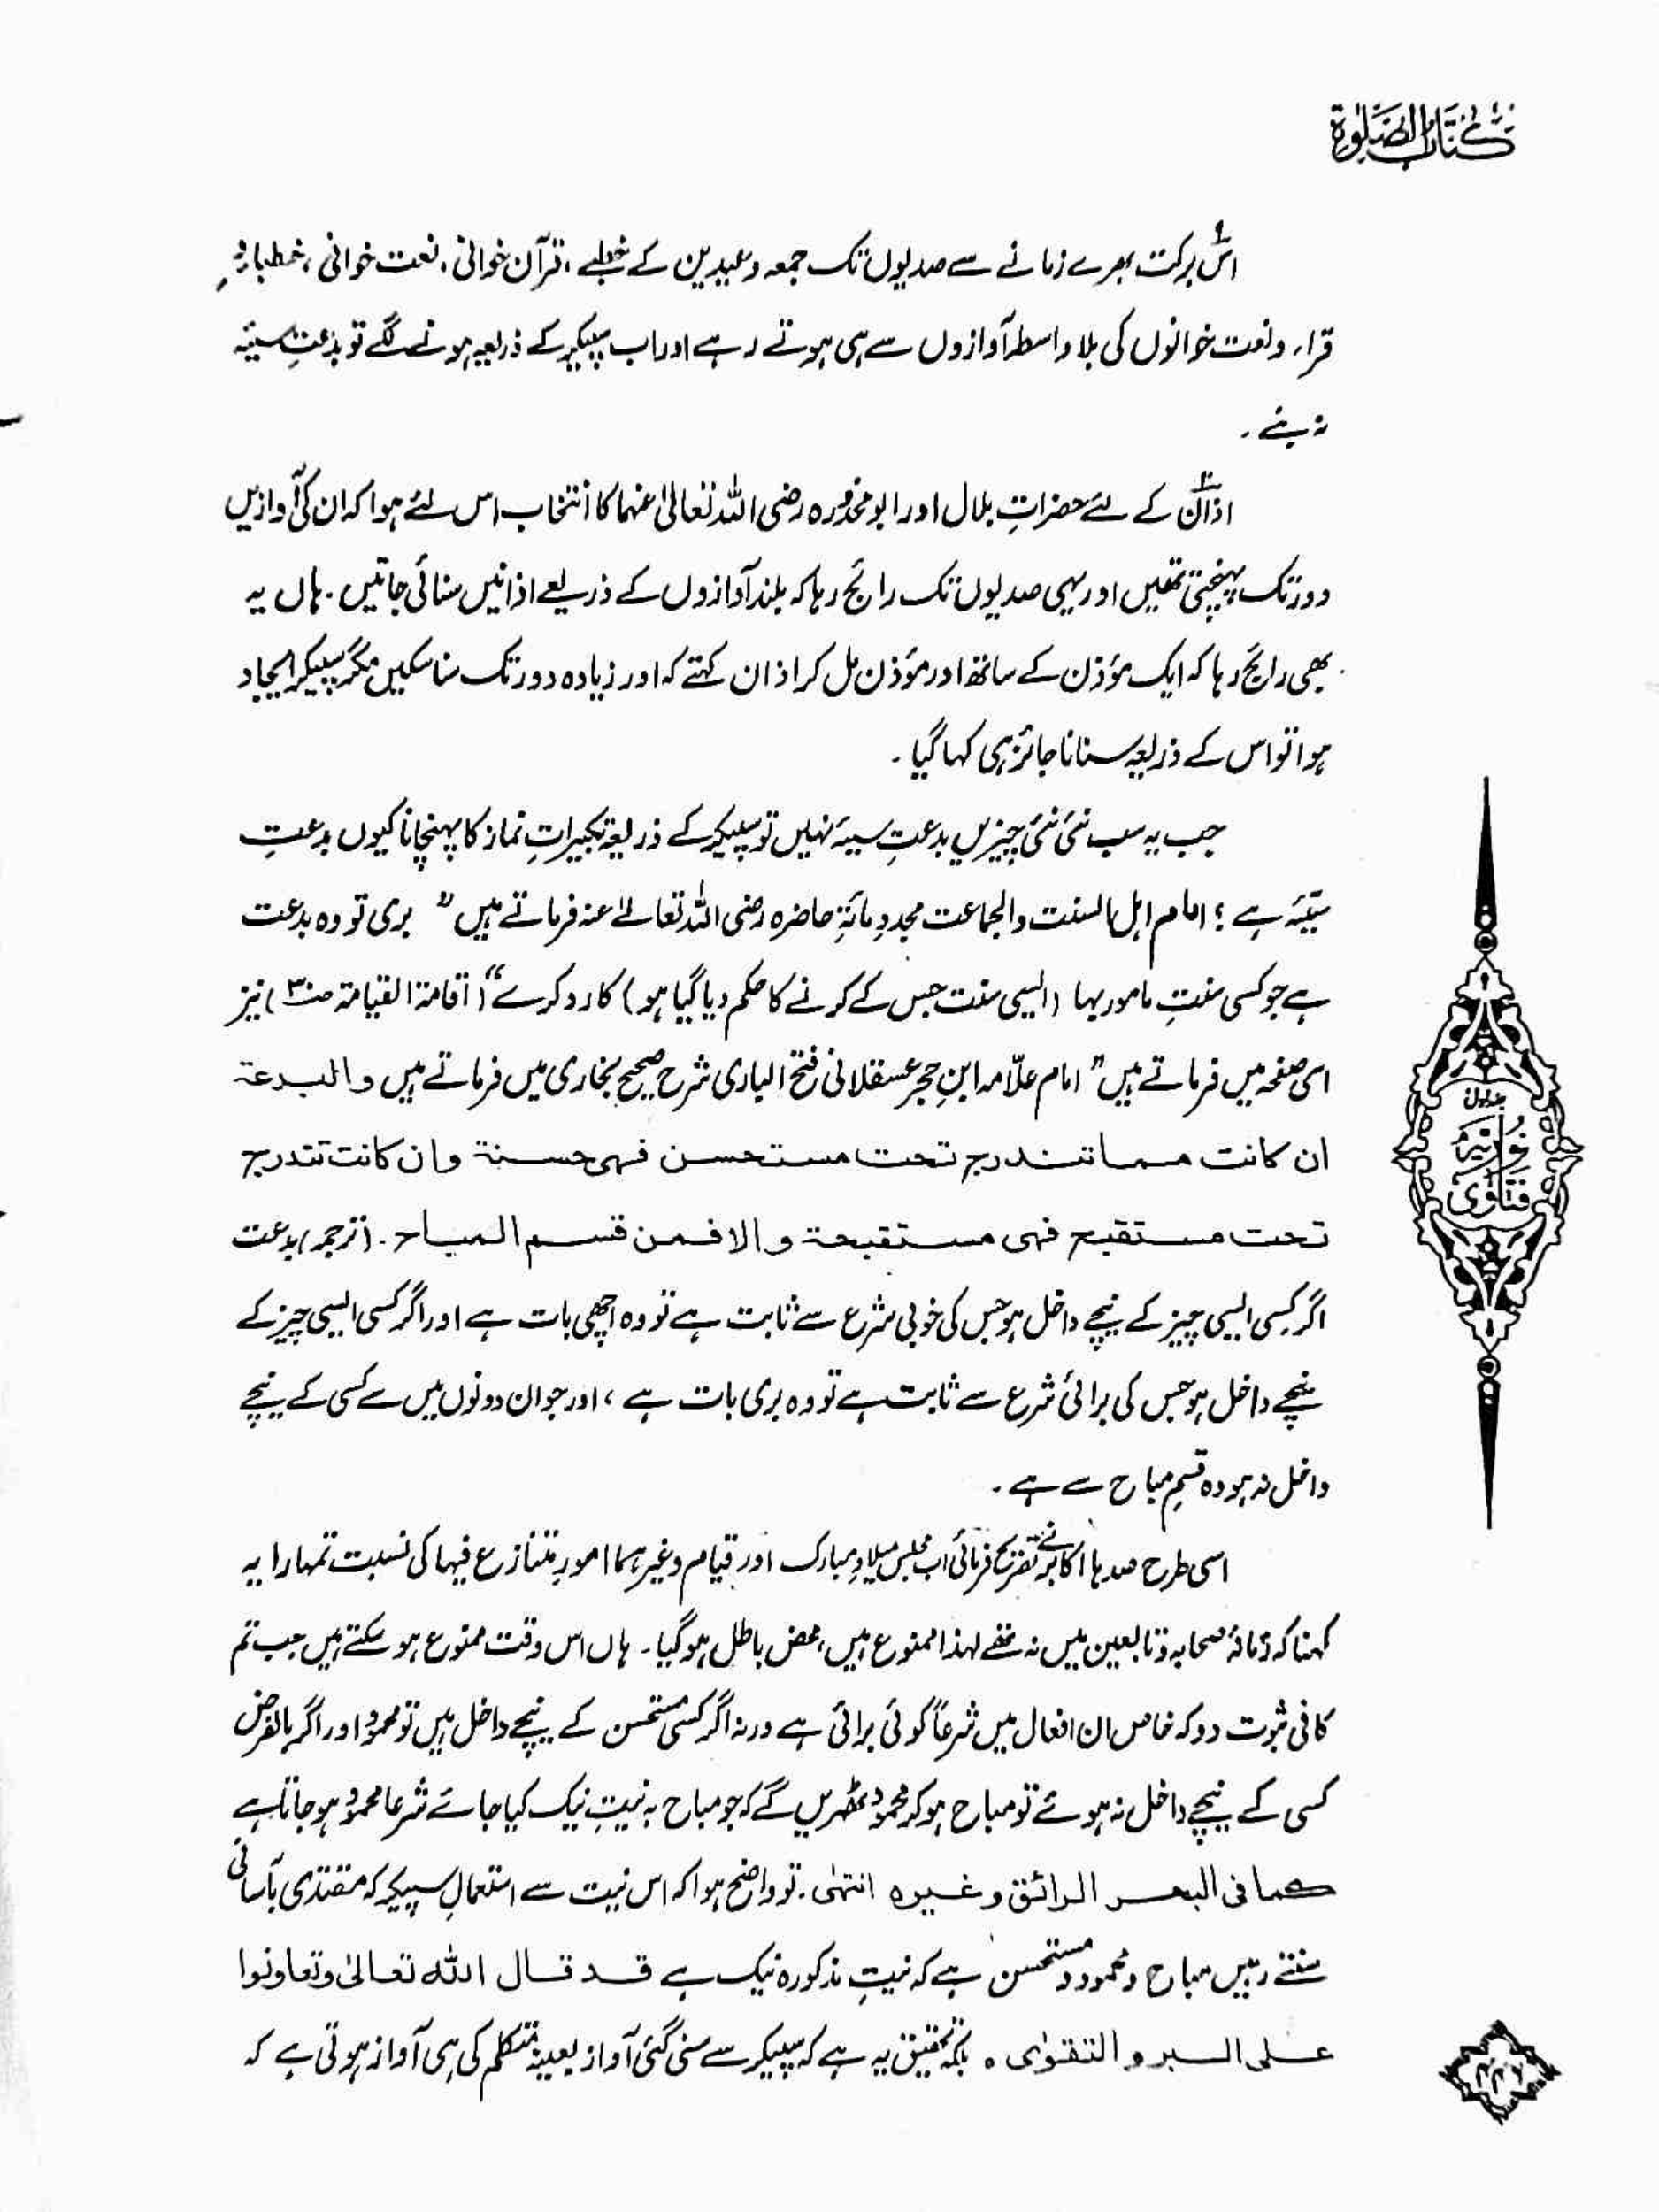 كتاب الصلوة
اس برکت بھرے زمانے سے صدیوں تک جمعہ و عیدین کے خطبے ، قرآن خوانی ، نعت خوانی ، خطباء و
قراء و نعت خوانوں کی بلا واسطہ آوازوں سے ہی ہوتے رہے اور اب سپیکر کے ذریعہ ہونے لگے تو بدعتِ سیئہ
نہ بنے ۔
اذان کے لئے حضراتِ بلال اور ابو محذورہ رضی اللہ تعالیٰ عنہما کا انتخاب اس لئے ہوا کہ ان کی آوازیں
دور تک پہنچتی تھیں اور یہی صدیوں تک رائج رہا کہ بلند آوازوں کے ذریعے اذانیں سنائی جاتیں ۔ ہاں یہ
بھی رائج رہا کہ ایک مؤذن کے ساتھ اور مؤذن مل کر اذان کہتے کہ اور زیادہ دور تک سنا سکیں مگر سپیکر ایجاد
ہوا تو اس کے ذریعہ سنانا جائز ہی کہا گیا ۔
جب یہ سب نئی نئی چیزیں بدعتِ سیئہ نہیں تو سپیکر کے ذریعہ تکبیراتِ نماز کا پہنچانا کیوں بدعتِ
سیّئہ ہے ؟ امام اہل السنت والجماعت مجددِ مائۃِ حاضرہ رضی اللہ تعالےٰ عنہ فرماتے ہیں " بری تو وہ بدعت
ہے جو کسی سنتِ مامور بہا (ایسی سنت جس کے کرنے کا حکم دیا گیا ہو) کا رد کرے " (اقامۃ القیامۃ ص۳۰) نیز
اسی صفحہ میں فرماتے ہیں " امام علّامہ ابنِ حجر عسقلانی فتح الباری شرح صحیح بخاری میں فرماتے ہیں والبدعۃ
ان كانت مما تندرج تحت مستحسن فهی حسنة وان كانت تندرج
تحت مستقبح فهی مستقبحة والا فمن قسم المباح ۔ (ترجمہ) بدعت
اگر کسی ایسی چیز کے نیچے داخل ہو جس کی خوبی شرع سے ثابت ہے تو وہ اچھی بات ہے اور اگر کسی ایسی چیز کے
نیچے داخل ہو جس کی برائی شرع سے ثابت ہے تو وہ بری بات ہے ، اور جو ان دونوں میں سے کسی کے نیچے
داخل نہ ہو وہ قسمِ مباح سے ہے ۔
جلداول
نوریہ
فتاوی
اسی طرح صدہا اکابر نے تصریح فرمائی اب مجلس میلادِ مبارک اور قیام وغیرہما امورِ متنازع فیہا کی نسبت تمہارا یہ
کہنا کہ زمانۂ صحابہ و تابعین میں نہ تھے لہذا ممنوع ہیں ، محض باطل ہو گیا ۔ ہاں اس وقت ممنوع ہو سکتے ہیں جب تم
کافی ثبوت دو کہ خاص ان افعال میں شرعاً کوئی برائی ہے ورنہ اگر کسی مستحسن کے نیچے داخل ہیں تو محمود اور اگر بالفرض
کسی کے نیچے داخل نہ ہوئے تو مباح ہو کر محمود ٹھریں گے کہ جو مباح بہ نیتِ نیک کیا جائے شرعا محمود ہو جاتا ہے
كما فی البحر الرائق وغيره انتہیٰ ۔ تو واضح ہوا کہ اس نیت سے استعمالِ سپیکر کہ مقتدی بآسانی
سنتے رہیں مباح و محمود و مستحسن ہے کہ نیتِ مذکورہ نیک ہے قد قال الله تعالیٰ وتعاونوا
على البر والتقوٰى ہ بلکہ تحقیق یہ ہے کہ سپیکر سے سنی گئی آواز بعینہٖ متکلم کی ہی آواز ہوتی ہے کہ